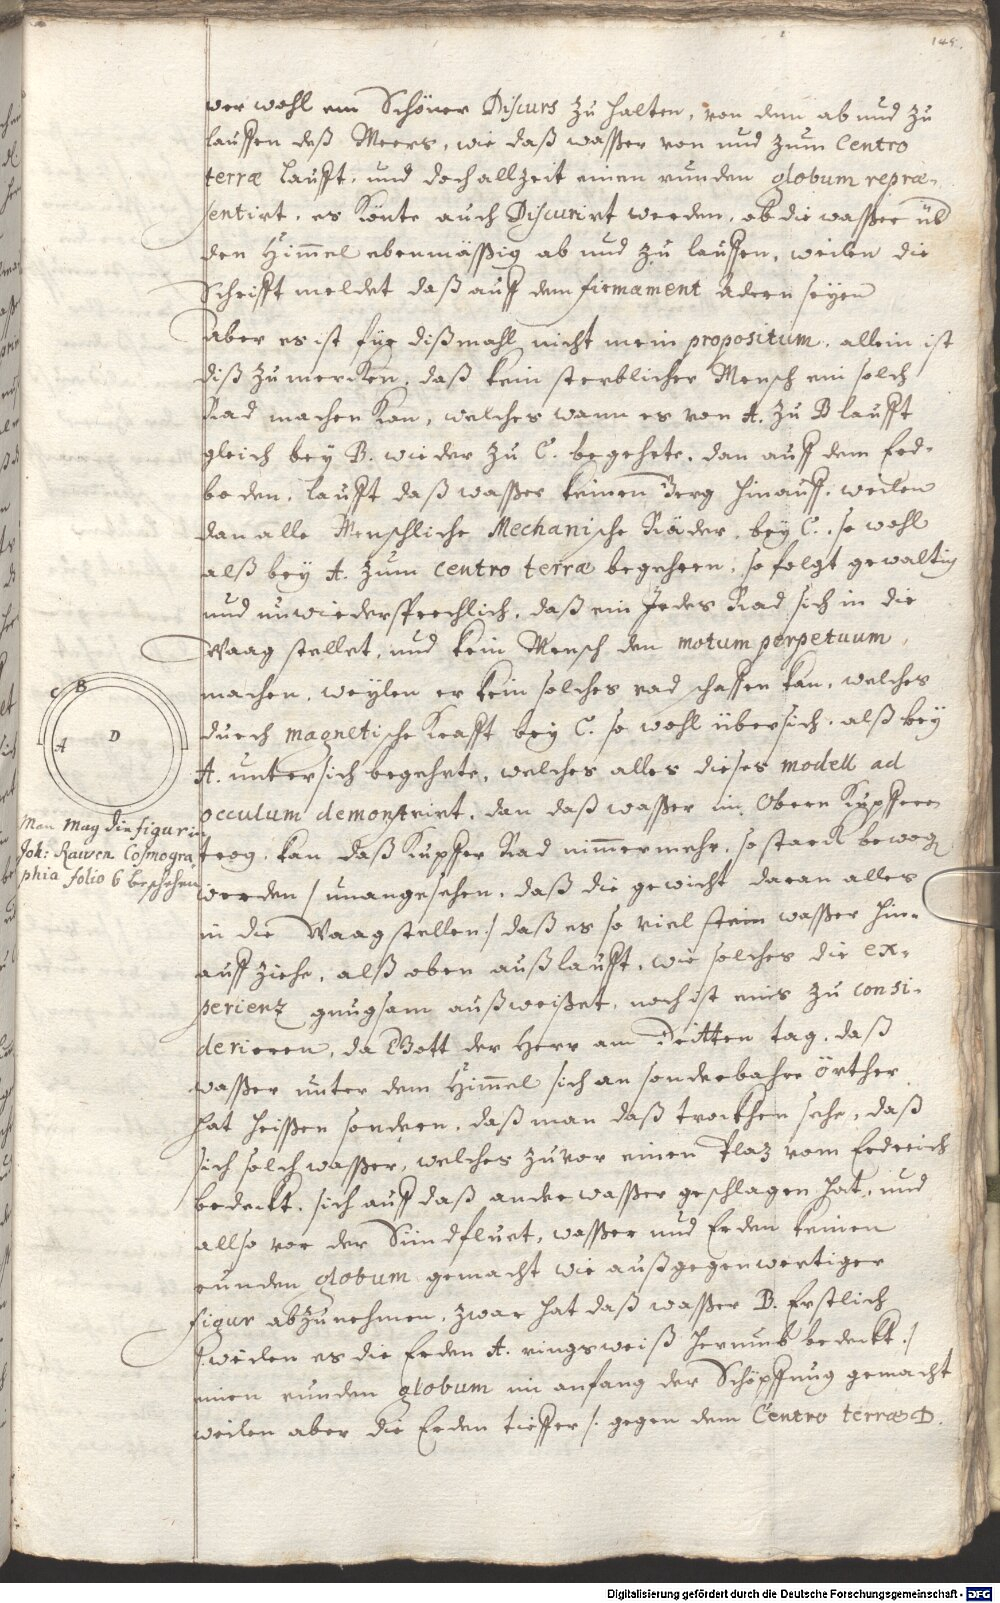 145.
wer wohl ein Schöner Discurs zu halten, von dem ab und zu
lauffen deß Meers, wie daß wasser von und zum Centro
terræ laufft, und doch allzeit einen runden globum repræ-
sentirt, es könte auch Discurirt werden, ob die wasser üb
den Himmel ebenmässig ab und zu lauffen, weilen die
Schrifft meldet daß auff dem firmament Adern seyen
aber es ist für dißmahl nicht mein propositum, allein ist
diß zu mercken, daß kein sterblicher Mensch ein solch
Rad machen kan, welches wann es von A. zu B laufft
gleich bey B. wieder zu C. begehrte, dan auff dem Erd-
boden, laufft daß wasser keinen Berg hinauff, weilen
dan alle Menschliche Mechanische Räder, bey C. so wohl
alß bey A. zum centro terræ begehren, so folgt gewaltig
und unwiedersprechlich, daß ein Jedes Rad sich in die
Waag stellet, und kein Mensch den motum perpetuum
machen, weylen er kein solches rad schaffen kan, welches
durch magnetische Krafft bey C. so wohl übersich, alß bey
A. untersich begehrte, welches alles dieses modell ad
occulum demonstrirt, dan daß wasser im Obern Kupffern
trog, kan daß Kupffer Rad nimmermehr, so starck bewog
werden / unangesehen, daß die gewicht daran alles
in die Waag stellen / daß es so viel wasser hin-
auff ziehe, alß oben außlaufft, wie solches die ex-
perienz gnugsam außweißet, noch ist eins zu consi-
derieren, da Gott der Herr am Dritten tag, daß
wasser unter dem Himmel sich an sonderbahre örther
hat heissen sondern, daß man daß trockhen sehe, daß
sich solch wasser, welches zuvor einen Plaz vom Erdreich
bedeckt, sich auff daß andre wasser geschlagen hat, und
allso vor der Sündfluet, wasser und Erden keinen
runden globum gemacht wie auß gegenwertiger
figur abzunehmen, zwar hat daß wasser B. Erstlich
/: weilen es die Erden A. ringsweiß herumb bedeckt :/
einen runden globum im anfang der Schöpffung gemacht
weilen aber die Erden tieffer /: gegen dem Centro terræ D.
C B
A D
Man Mag die figur in
Joh: Rawen Cosmogra
phia folio 6 besehen
Digitalisierung gefördert durch die Deutsche Forschungsgemeinschaft - DFG